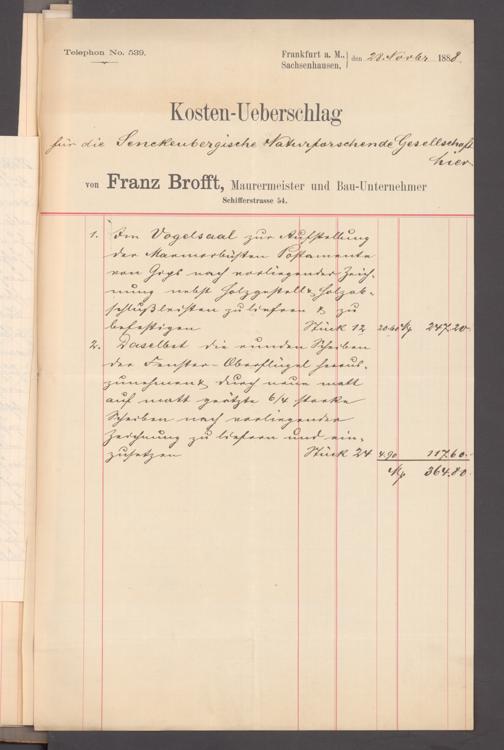 Telephon No. 539.
Frankfurt a. M.,
Sachsenhausen, den 28. Novbr 1888.
Kosten-Ueberschlag
für die Senckenbergische Naturforschende Gesellschaft
hier
von Franz Brofft, Maurermeister und Bau-Unternehmer
Schifferstrasse 54.
1. Im Vogelsaal zur Aufstellung
der Marmorbüsten Postamente
von Gyps nach vorliegender Zeich-
nung nebst Holzgestell & Holzab-
schlußleisten zu liefern & zu
befestigen Stück 12 20.60 M 247.20.
2. Daselbst die runden Scheiben
der Fenster-Oberflügel heraus-
zunehmen & durch neue matt
auf matt geätzte 6/4 starke
Scheiben nach vorliegender
Zeichnung zu liefern und ein-
zusetzen Stück 24 4.90 117.60.
M 364.80.